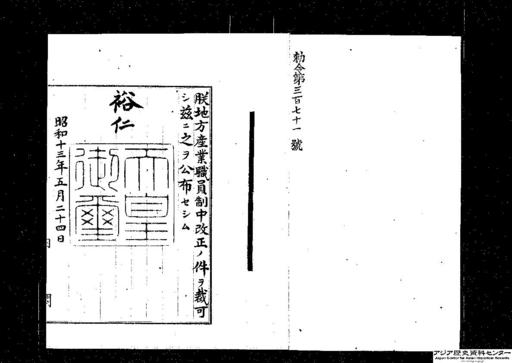 勅令第三百七十一號
朕地方産業職員制中改正ノ件ヲ裁可
シ茲ニ之ヲ公布セシム
裕仁
天皇
御璽
昭和十三年五月二十四日
アジア歴史資料センター
Japan Center for Asian Historical Records